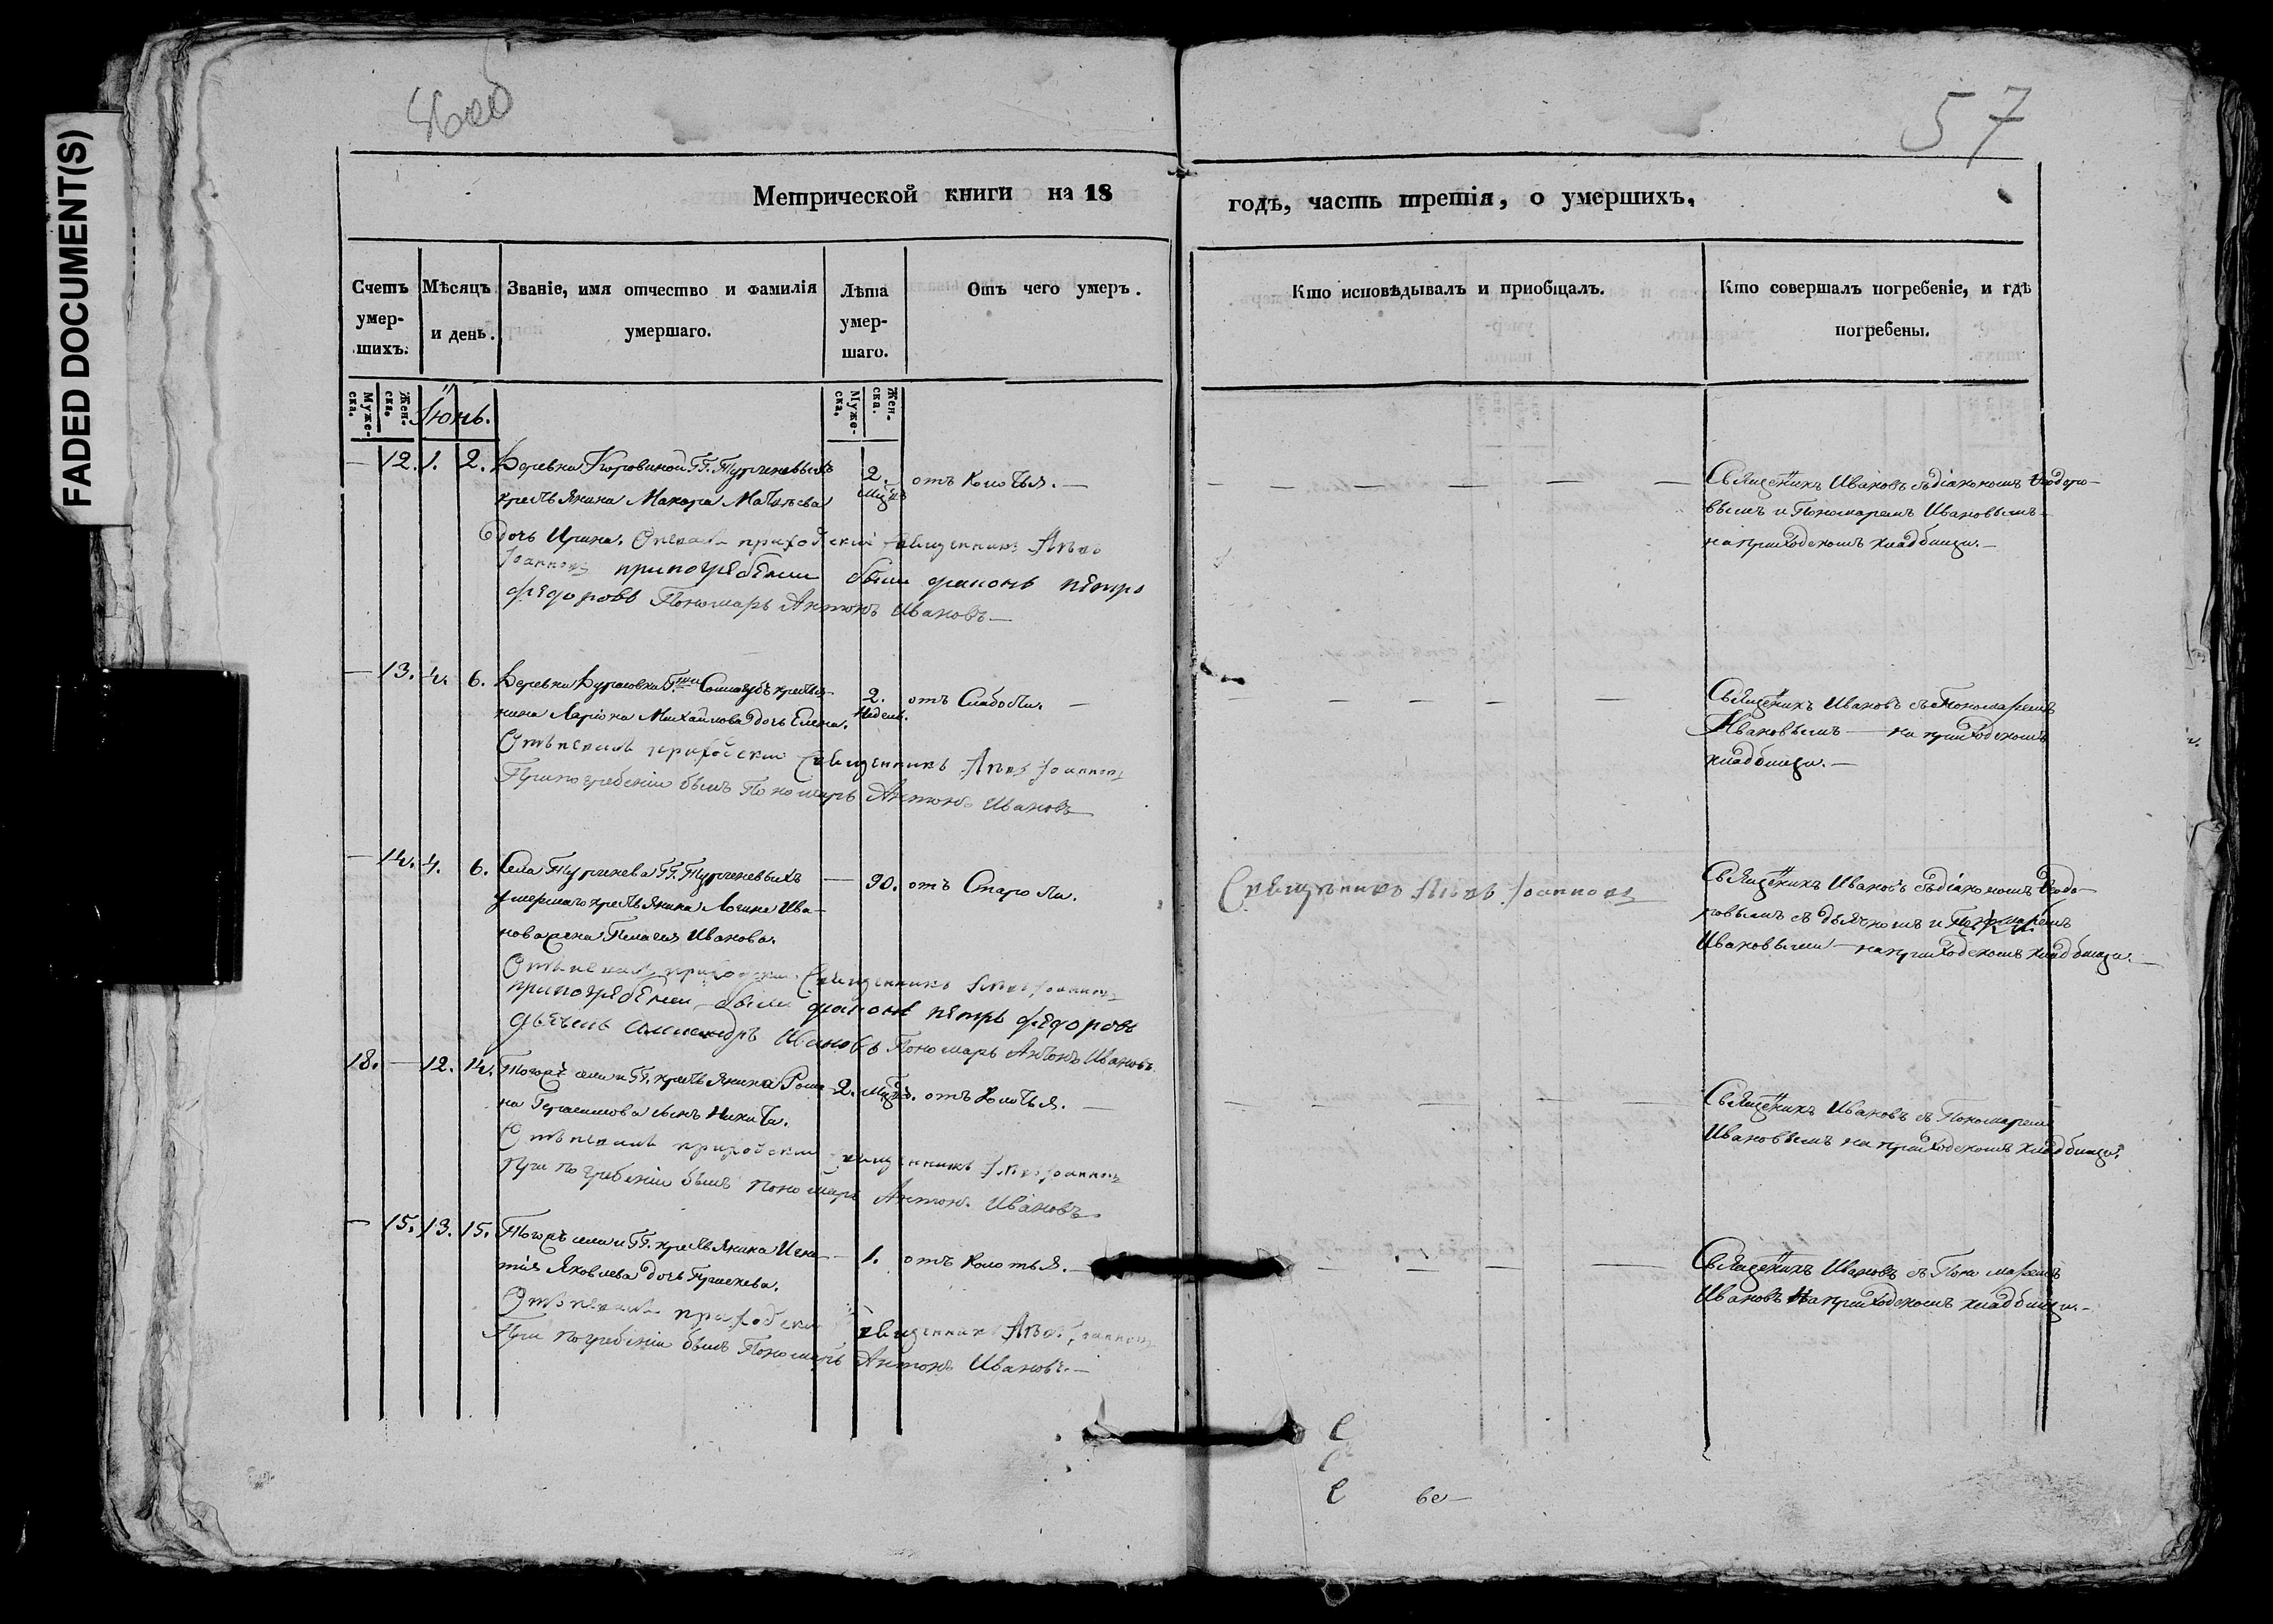 FADED DOCUMENT(S)
57
Метрической книги на 18
годъ, часть третія, о умершихъ.
Счетъ умер-шихъ.
Мѣсяцъ и день.
Званіе, имя отчество и фамилія умершаго.
Лѣта умер-шаго.
Отъ чего умеръ.
Кто исповѣдывалъ и приобщалъ.
Кто совершалъ погребеніе, и гдѣ погребены.
Муже-ска.
Жен-ска.
Іюнь.
Муже-ска.
Жен-ска.
— 12. 1. 2. Деревни Коровиной ГГ. Тургеневыхъ 2. отъ колотья. —
крестьянина Макара Матвѣева
дочь Ирина. приходскій священникъ
Іоанновъ при погребеніи были діаконъ Петръ
Федоровъ Пономарь Антонъ Ивановъ —
Священникъ Ивановъ съ діакономъ Ѳеодоро-
вымъ и Пономаремъ Ивановымъ
на приходскомъ кладбищи. —
— 13. 4. 6. Деревни крестья- 2. недель. отъ слабости. —
нина Ларіона Михайлова дочь Елена.
Отпевалъ приходскій священникъ Іоанновъ
При погребеніи былъ Пономарь Антонъ Ивановъ
Священникъ Ивановъ съ Пономаремъ
Ивановымъ — на приходскомъ
кладбищи. —
— 14. 4. 6. Села Тургенева ГГ. Тургеневыхъ — 90. отъ старости.
умершаго крестьянина Логина Ива-
нова жена Пелагея Иванова.
Отпевалъ приходскій священникъ Іоанновъ
при погребеніи были діаконъ Петръ Федоровъ
дьячекъ Александръ Ивановъ Пономарь Антонъ Ивановъ
Священникъ Іоанновъ
Священникъ Ивановъ съ діакономъ Ѳеодо-
ровымъ съ дьячкомъ и Пономаремъ
Ивановыми — на приходскомъ кладбищи. —
18. — 12. 14. Тогожъ села и ГГ. крестьянина Рома- 2. отъ колотья. —
на Герасимова сынъ Никита.
Отпевалъ приходскій священникъ Іоанновъ
При погребеніи былъ пономарь Антонъ Ивановъ
Священникъ Ивановъ съ Пономаремъ
Ивановымъ на приходскомъ кладбищи.
— 15. 13. 15. Тогожъ села и ГГ. крестьянина Игна- — 1. отъ колотья. —
тія Яковлева дочь
Отпевалъ приходскій священникъ Іоанновъ
При погребеніи былъ Пономарь Антонъ Ивановъ. —
Священникъ Ивановъ съ Пономаремъ
Ивановъ на приходскомъ кладбищи. —